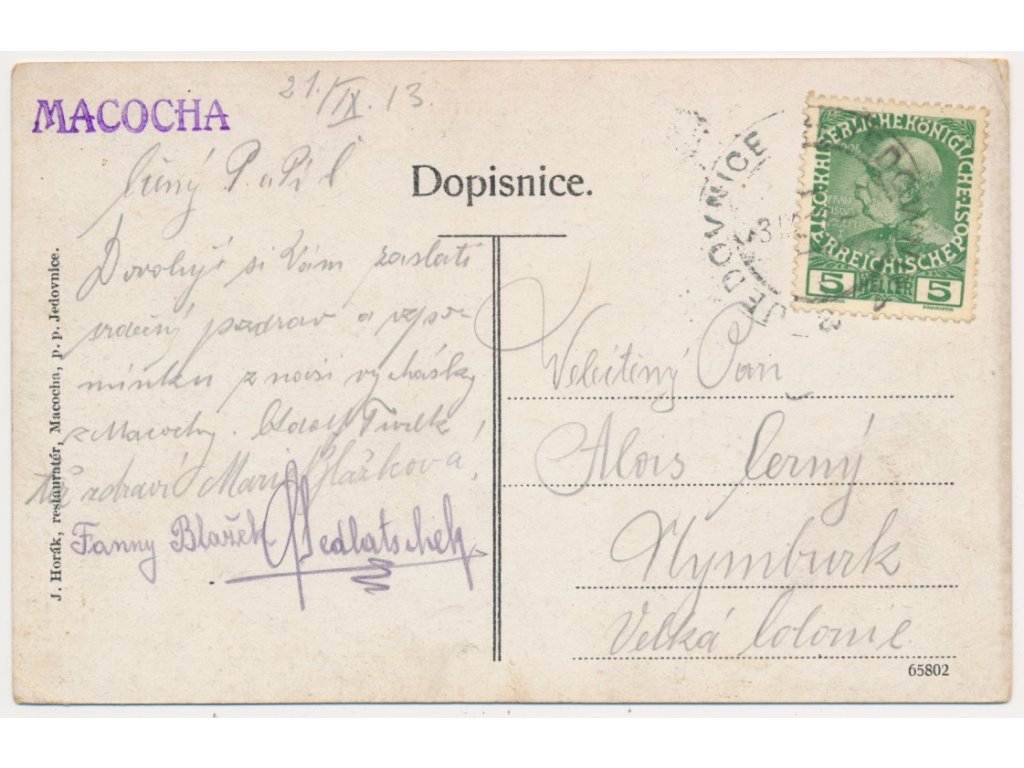 21./IX. 13.
MACOCHA
Dopisnice.
Ctěný P. 
Dovoluji si Vám zaslati
srdečný pozdrav a vzpo-
mínku z naší vycházky
z Macochy. Adolf
též zdraví Marie Blažková
Fanny Blažek Sedlatschek
J. Horák, restauratér, Macocha, p. p. Jedovnice.
JEDOVNICE
KAISERLICHE KÖNIGLICHE
ÖSTERREICHISCHE POST
5 HELLER 5
Velectěný Pan
Alois Černý
Nymburk
Velká Colonie
65802